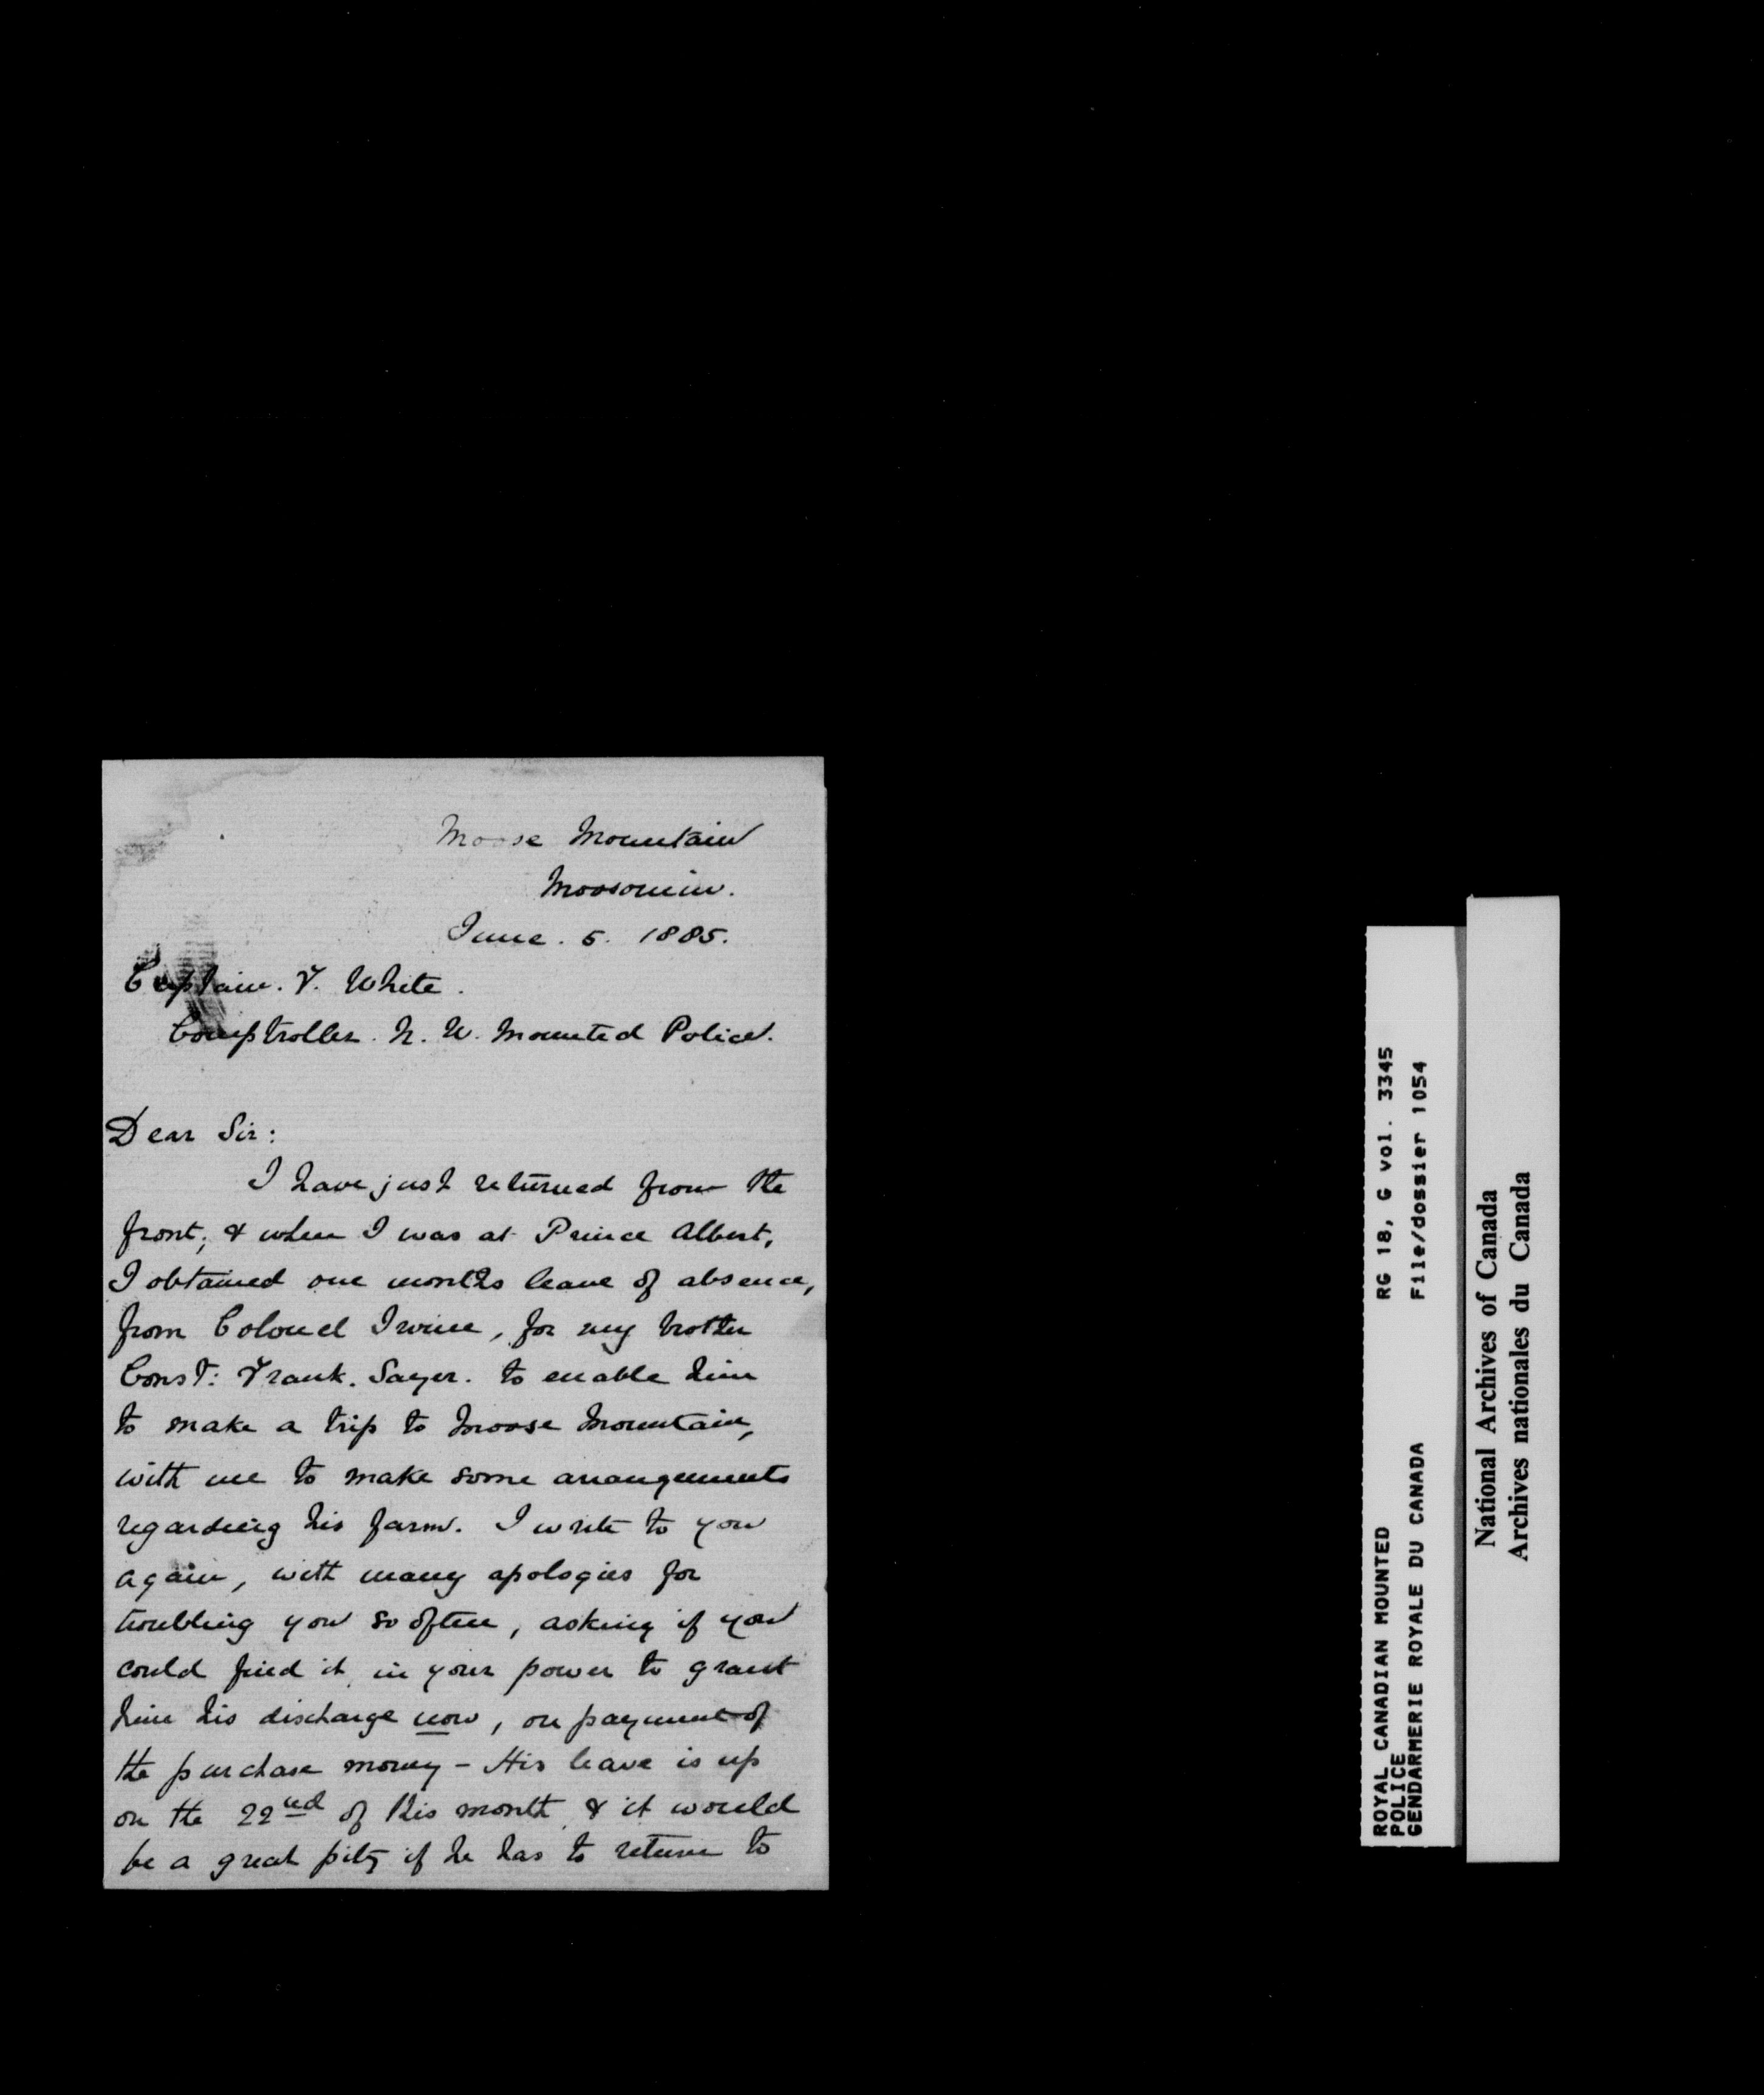 Moose Mountain
Moosomin.
June. 5. 1885.
Captain. F. White.
Comptroller. N. W. Mounted Police.
Dear Sir:
I have just returned from the
front; & when I was at Prince Albert,
I obtained one months leave of absence,
from Colonel Irvine, for my brother
Const: Frank. Sayer. to enable him
to make a trip to Moose Mountain,
with me to make some arrangements
regarding his farm. I write to you
again, with many apologies for
troubling you so often, asking if you
could find it in your power to grant
him his discharge now, on payment of
the purchase money - His leave is up
on the 22nd of this month & it would
be a great pity if he has to return to
ROYAL CANADIAN MOUNTED RG 18, G vol. 3345
POLICE
GENDARMERIE ROYALE DU CANADA File/dossier 1054
National Archives of Canada
Archives nationales du Canada